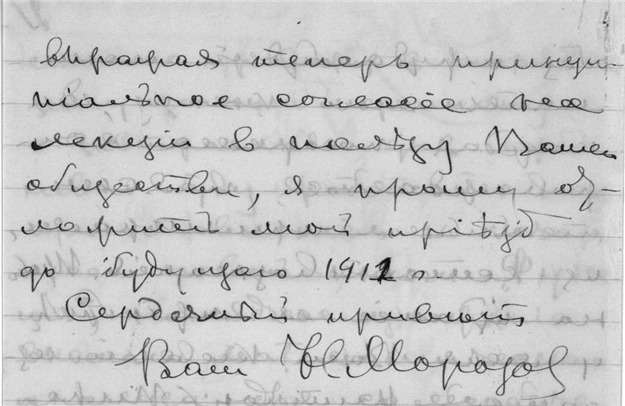 выражая теперь принци-
піальное согласіе на
лекціи в пользу Вашего
общества, я прошу от-
ложить мой пріѣзд
до будущаго 1912 г.
Сердечный привѣт
Ваш Н. Морозов